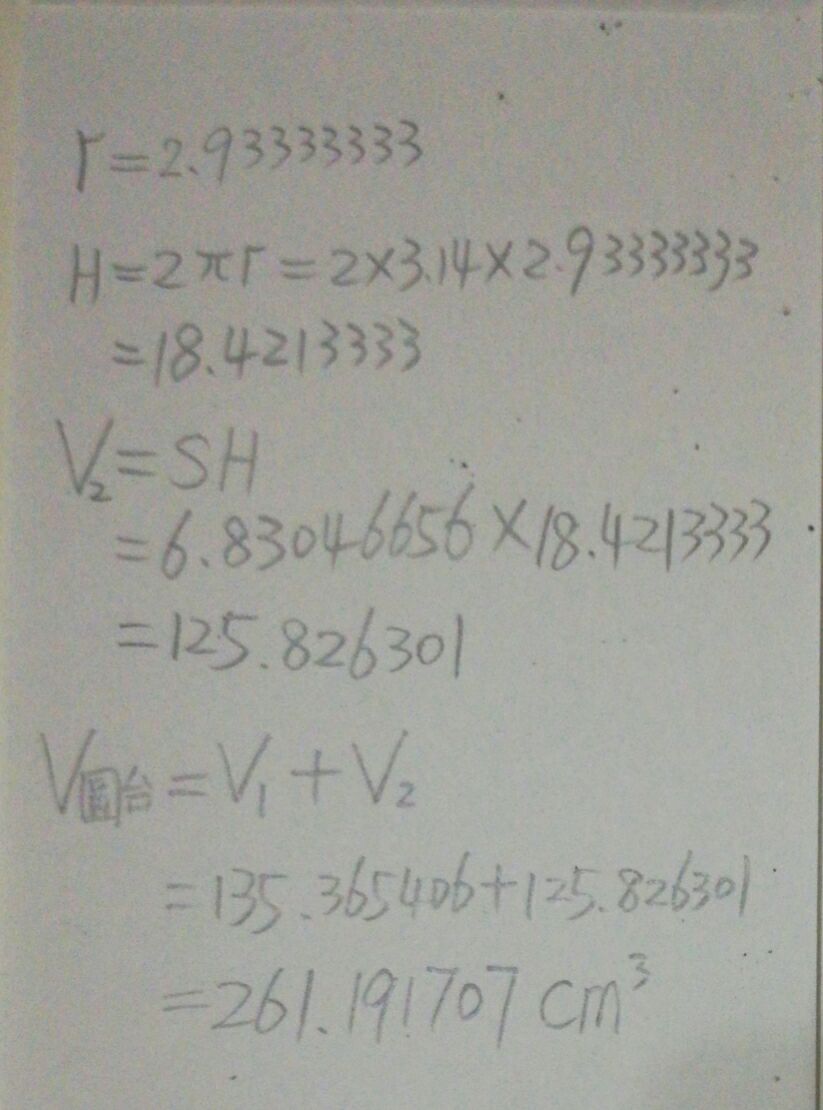 r=2.93333333
H=2πr=2×3.14×2.93333333
=18.4213333
V₂=SH
=6.83046656×18.4213333
=125.826301
V圓台=V₁+V₂
=135.365406+125.826301
=261.191707cm³